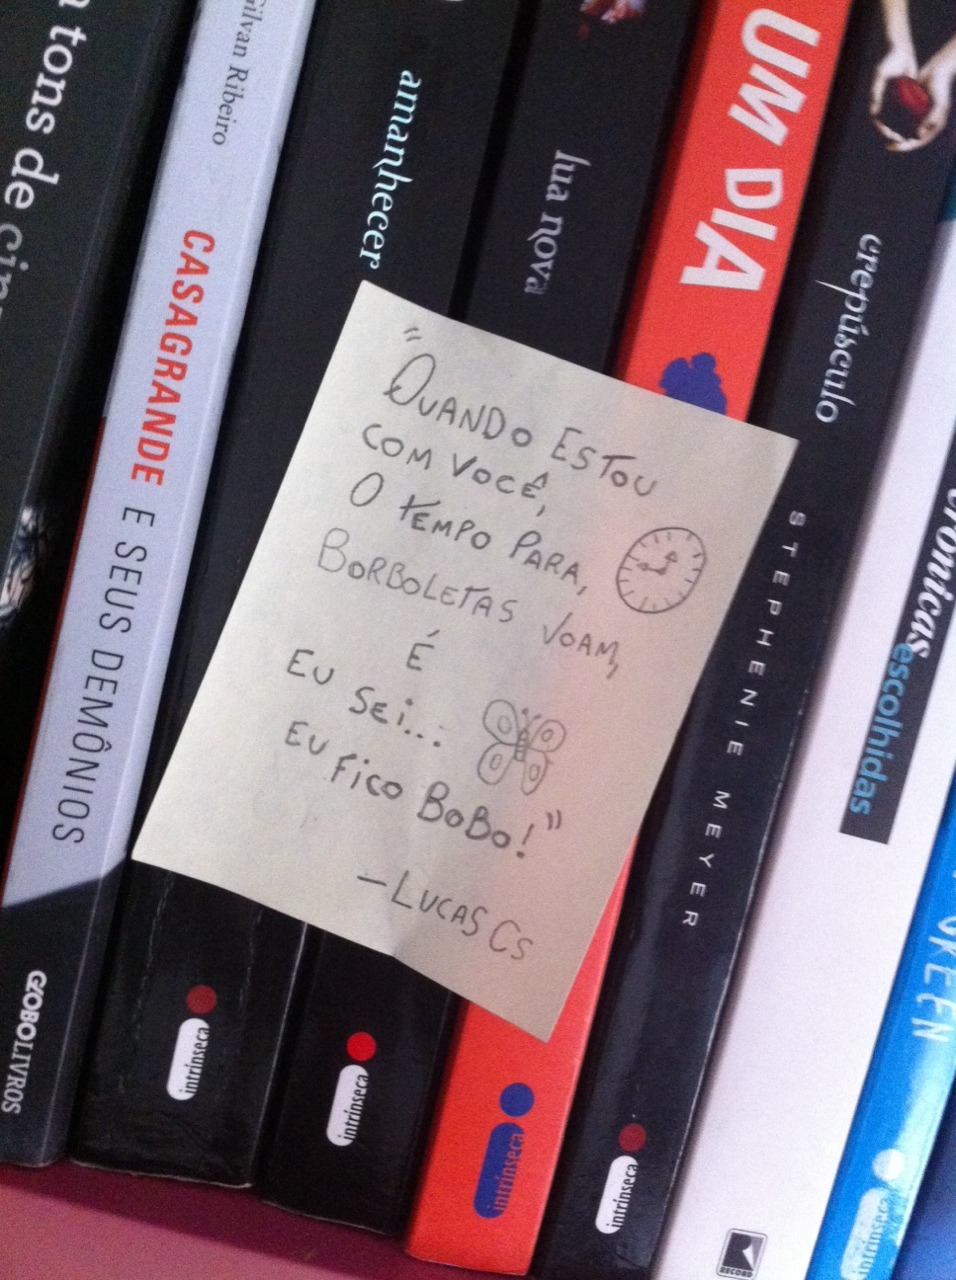 tons de
Gilvan Ribeiro
CASAGRANDE E SEUS DEMÔNIOS
GLOBOLIVROS
amanhecer
intrínseca
lua nova
intrínseca
UM DIA
intrínseca
crepúsculo
STEPHENIE MEYER
intrínseca
crônicas
escolhidas
RECORD
GREEN
intrínseca
"QUANDO ESTOU
COM VOCÊ,
O TEMPO PARA,
BORBOLETAS VOAM,
É
EU SEI...
EU FICO BOBO!"
—LUCAS CS